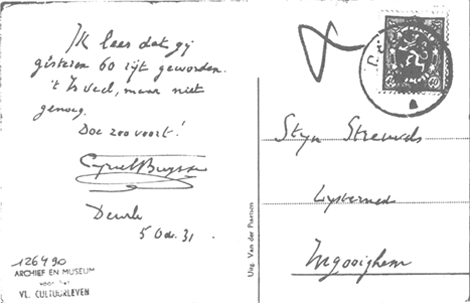 Ik lees dat gij
gisteren 60 zijt geworden.
't Is veel, maar niet
genoeg.
Doe zoo voort!
Cyriel Buysse
Deurle
5 Oct. 31
126490
ARCHIEF EN MUSEUM
voor het
VL. CULTUURLEVEN
Uitg. Van der Poorten
Styn Streuvels
Lysternest
Ingooighem